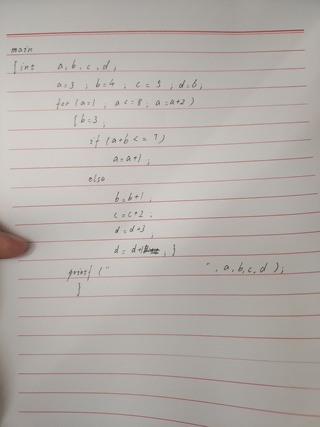 main
{int a, b, c, d;
a=3 ; b=4 ; c=5 ; d=6;
for (a=1, a<=8; a=a+2)
{b=3;
if (a+b<=7)
a=a+1;
else
b=b+1;
c=c+2;
d=d+3;
d=d+; }
printf (" ", a,b,c,d );
}